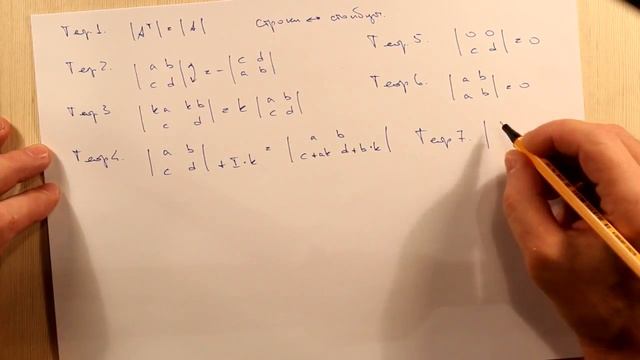 Теор.1. |Aᵀ| = |A| строки ↔ столбцы.
Теор.2. | a b ; c d | = - | c d ; a b |
Теор.3 | ka kb ; c d | = k | a b ; c d |
Теор4. | a b ; c d | + I·k = | a b ; c+ak d+b·k |
Теор.5. | 0 0 ; c d | = 0
Теор6. | a b ; a b | = 0
Теор7. |